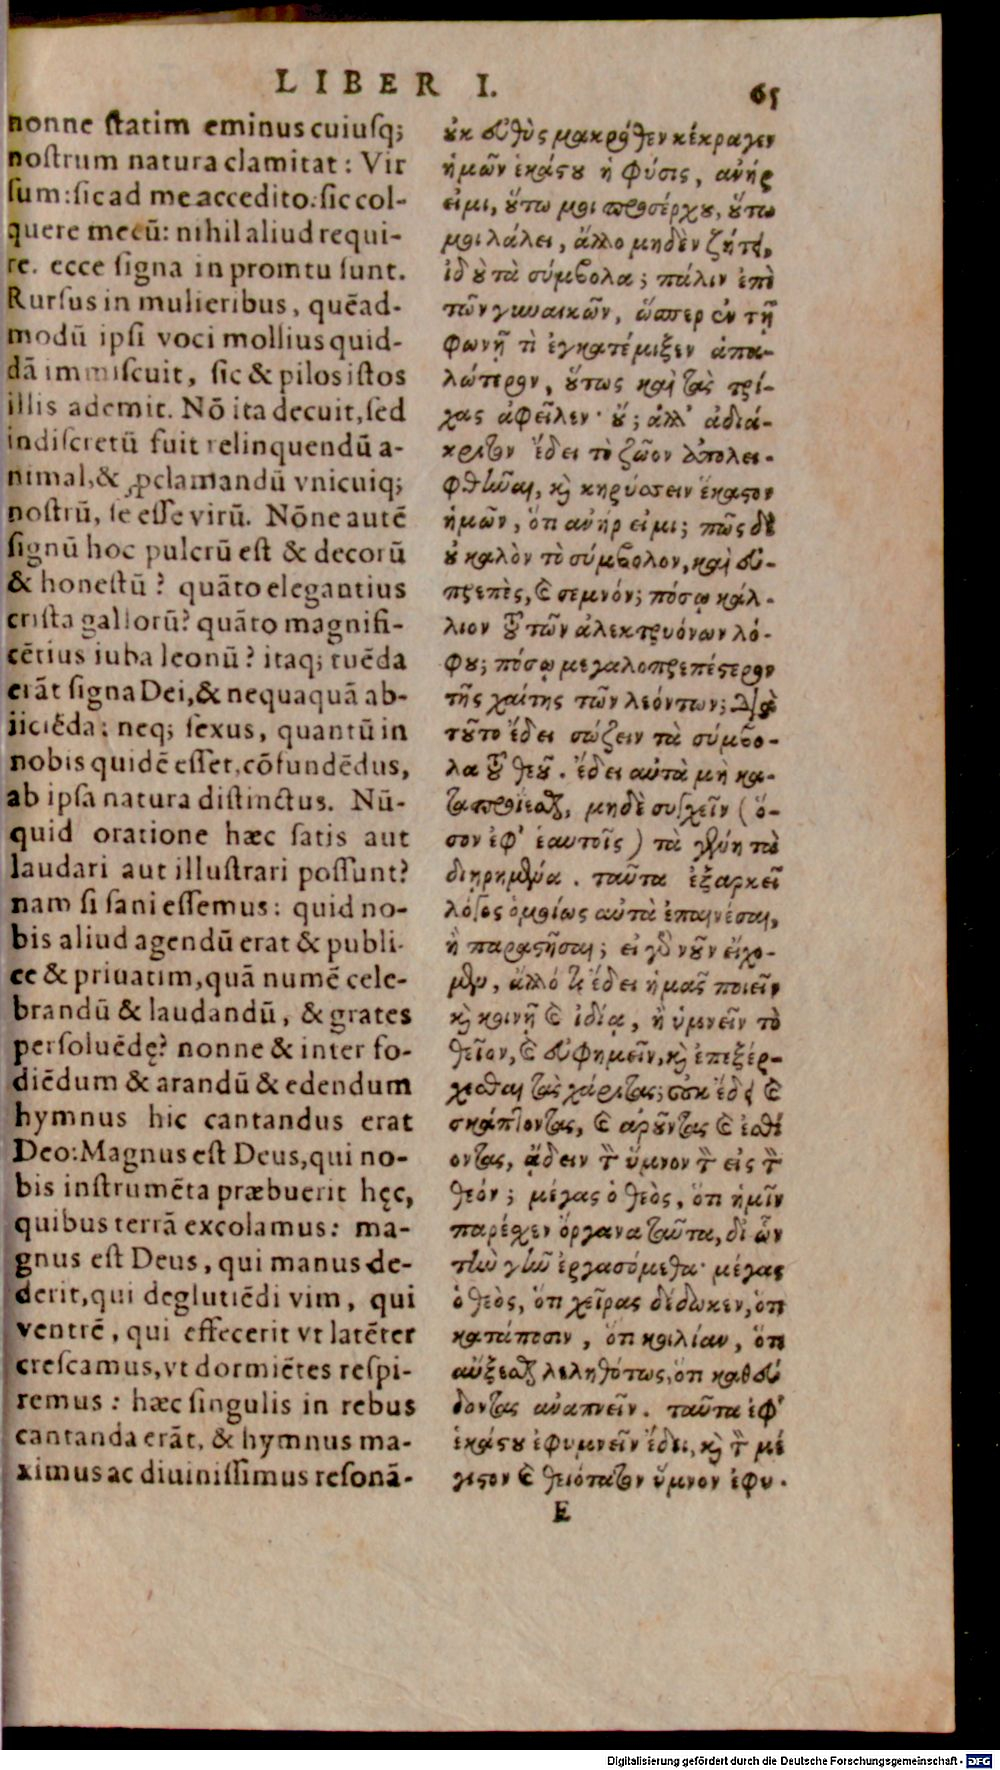 LIBER I.
65
nonne ſtatim eminus cuiuſq;
noſtrum natura clamitat: Vir
ſum: ſic ad me accedito: ſic col-
quere mecū: nihil aliud requi-
re. ecce ſigna in promtu ſunt.
Rurſus in mulieribus, quēad-
modū ipſi voci mollius quid-
dā immiſcuit, ſic & pilos iſtos
illis ademit. Nō ita decuit, ſed
indiſcretū fuit relinquendū a-
nimal, & ꝓclamandū vnicuiq;
noſtrū, ſe eſſe virū. Nōne autē
ſignū hoc pulcrū eſt & decorū
& honeſtū? quāto elegantius
criſta gallorū? quāto magnifi-
cētius iuba leonū? itaq; tuēda
erāt ſigna Dei, & nequaquā ab-
iiciēda: neq; ſexus, quantū in
nobis quidē eſſet, cōfundēdus,
ab ipſa natura diſtinctus. Nū-
quid oratione hæc ſatis aut
laudari aut illuſtrari poſſunt?
nam ſi ſani eſſemus: quid no-
bis aliud agendū erat & publi-
ce & priuatim, quā numē cele-
brandū & laudandū, & grates
perſoluēdę? nonne & inter fo-
diēdum & arandū & edendum
hymnus hic cantandus erat
Deo: Magnus eſt Deus, qui no-
bis inſtrumēta præbuerit hęc,
quibus terrā excolamus: ma-
gnus eſt Deus, qui manus de-
derit, qui deglutiēdi vim, qui
ventrē, qui effecerit vt latēter
creſcamus, vt dormiētes reſpi-
remus: hæc ſingulis in rebus
cantanda erāt, & hymnus ma-
ximus ac diuiniſſimus reſonā-
ὐκ εὐθὺς μακρόθεν κέκραγεν
ἡμῶν ἑκάστου ἡ φύσις, ἀνήρ
εἰμι, οὕτω μοι προσέρχου, οὕτω
μοι λάλει, ἄλλο μηδὲν ζήτει,
ἰδοὺ τὰ σύμβολα; πάλιν ἐπὶ
τῶν γυναικῶν, ὥσπερ ἐν τῇ
φωνῇ τὶ ἐγκατέμιξεν ἁπα-
λώτερον, οὕτως καὶ τὰς τρί-
χας ἀφεῖλεν· οὔ; ἀλλ' ἀδιά-
κριτον ἔδει τὸ ζῶον ἀπολει-
φθῆναι, καὶ κηρύσσειν ἕκαστον
ἡμῶν, ὅτι ἀνήρ εἰμι; πῶς δὲ
οὐ καλὸν τὸ σύμβολον, καὶ εὐ-
πρεπὲς, καὶ σεμνόν; πόσῳ κάλ-
λιον τοῦ τῶν ἀλεκτρυόνων λό-
φου; πόσῳ μεγαλοπρεπέστερον
τῆς χαίτης τῶν λεόντων; διὰ
τοῦτο ἔδει σώζειν τὰ σύμβο-
λα τοῦ θεοῦ. ἔδει αὐτὰ μὴ κα-
ταπροΐεσθαι, μηδὲ συγχεῖν (ὅ-
σον ἐφ' ἑαυτοῖς) τὰ γένη τὰ
διῃρημένα. ταῦτα ἐξαρκεῖ
λόγος ὁμοίως αὐτὰ ἐπαινέσαι,
ἢ παραστῆσαι; εἰ γὰρ νοῦν εἴχο-
μεν, ἄλλό τι ἔδει ἡμᾶς ποιεῖν
καὶ κοινῇ καὶ ἰδίᾳ, ἢ ὑμνεῖν τὸ
θεῖον, καὶ εὐφημεῖν, καὶ ἐπεξέρ-
χεσθαι τὰς χάριτας; οὐκ ἔδει καὶ
σκάπτοντας, καὶ ἀροῦντας καὶ ἐσθί
οντας, ᾄδειν τὸν ὕμνον τὸν εἰς τὸν
θεόν; μέγας ὁ θεὸς, ὅτι ἡμῖν
παρέχεν ὄργανα ταῦτα, δι' ὧν
τὴν γῆν ἐργασόμεθα· μέγας
ὁ θεὸς, ὅτι χεῖρας δέδωκεν, ὅτι
κατάποσιν, ὅτι κοιλίαν, ὅτι
αὔξεσθαι λεληθότως, ὅτι καθεύ
δοντας ἀναπνεῖν. ταῦτα ἐφ'
ἑκάστου ἐφυμνεῖν ἔδει, καὶ τὸν μέ
γιστον καὶ θειότατον ὕμνον ἐφυ-
E
Digitalisierung gefördert durch die Deutsche Forschungsgemeinschaft - DFG